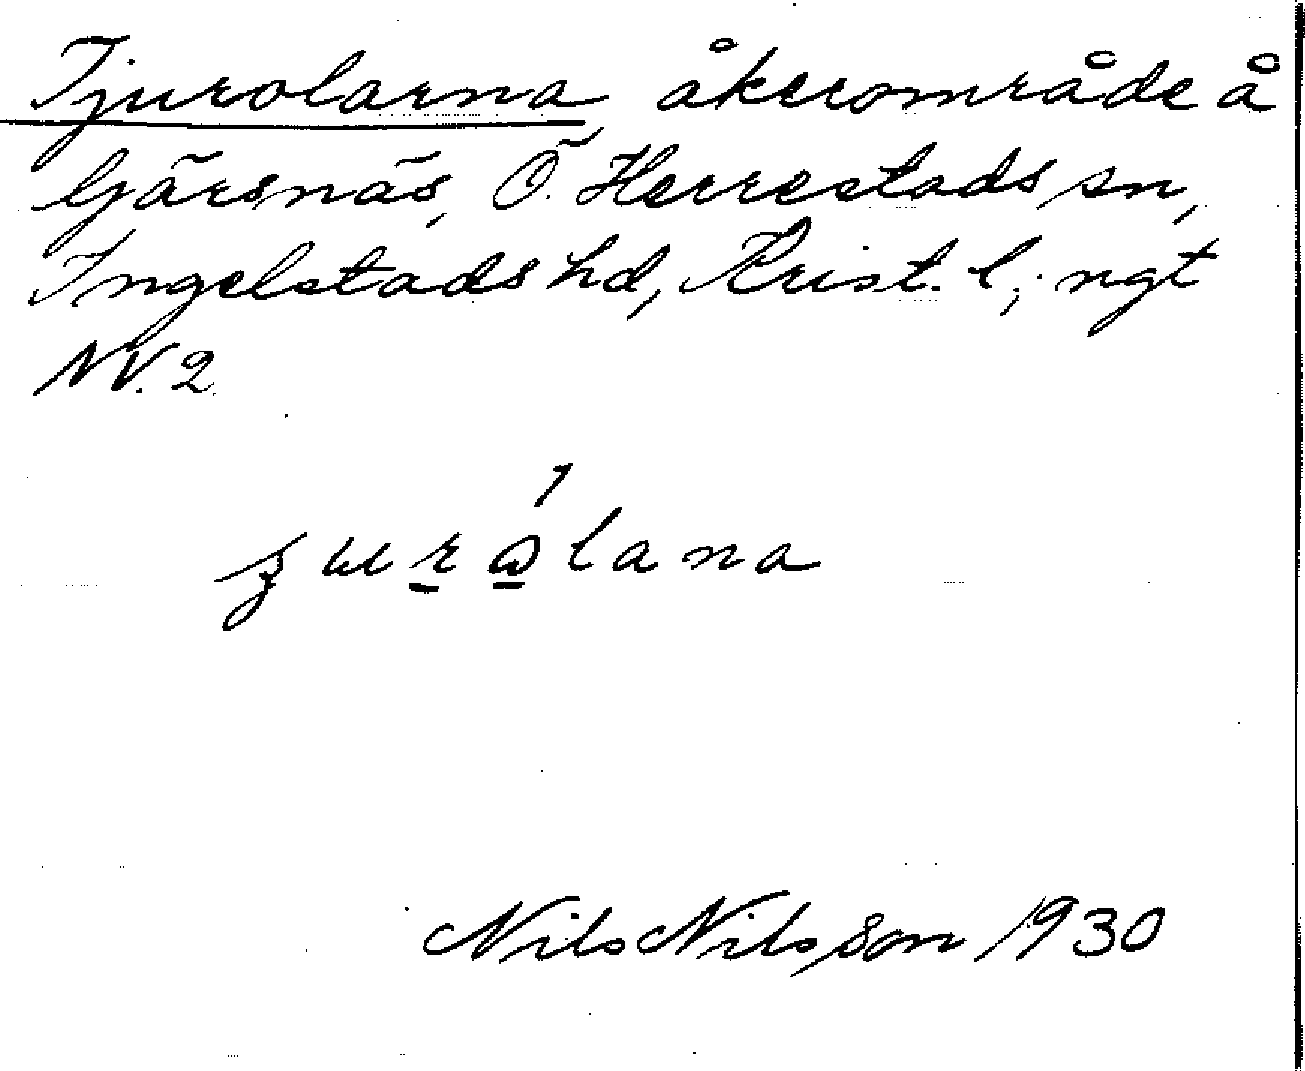 Tjurolarna, åkerområde å
Gärsnäs, Ö. Herrestads sn,
Ingelstads hd, Krist. l; ngt
NV. 2.
Nils Nilsson 1930